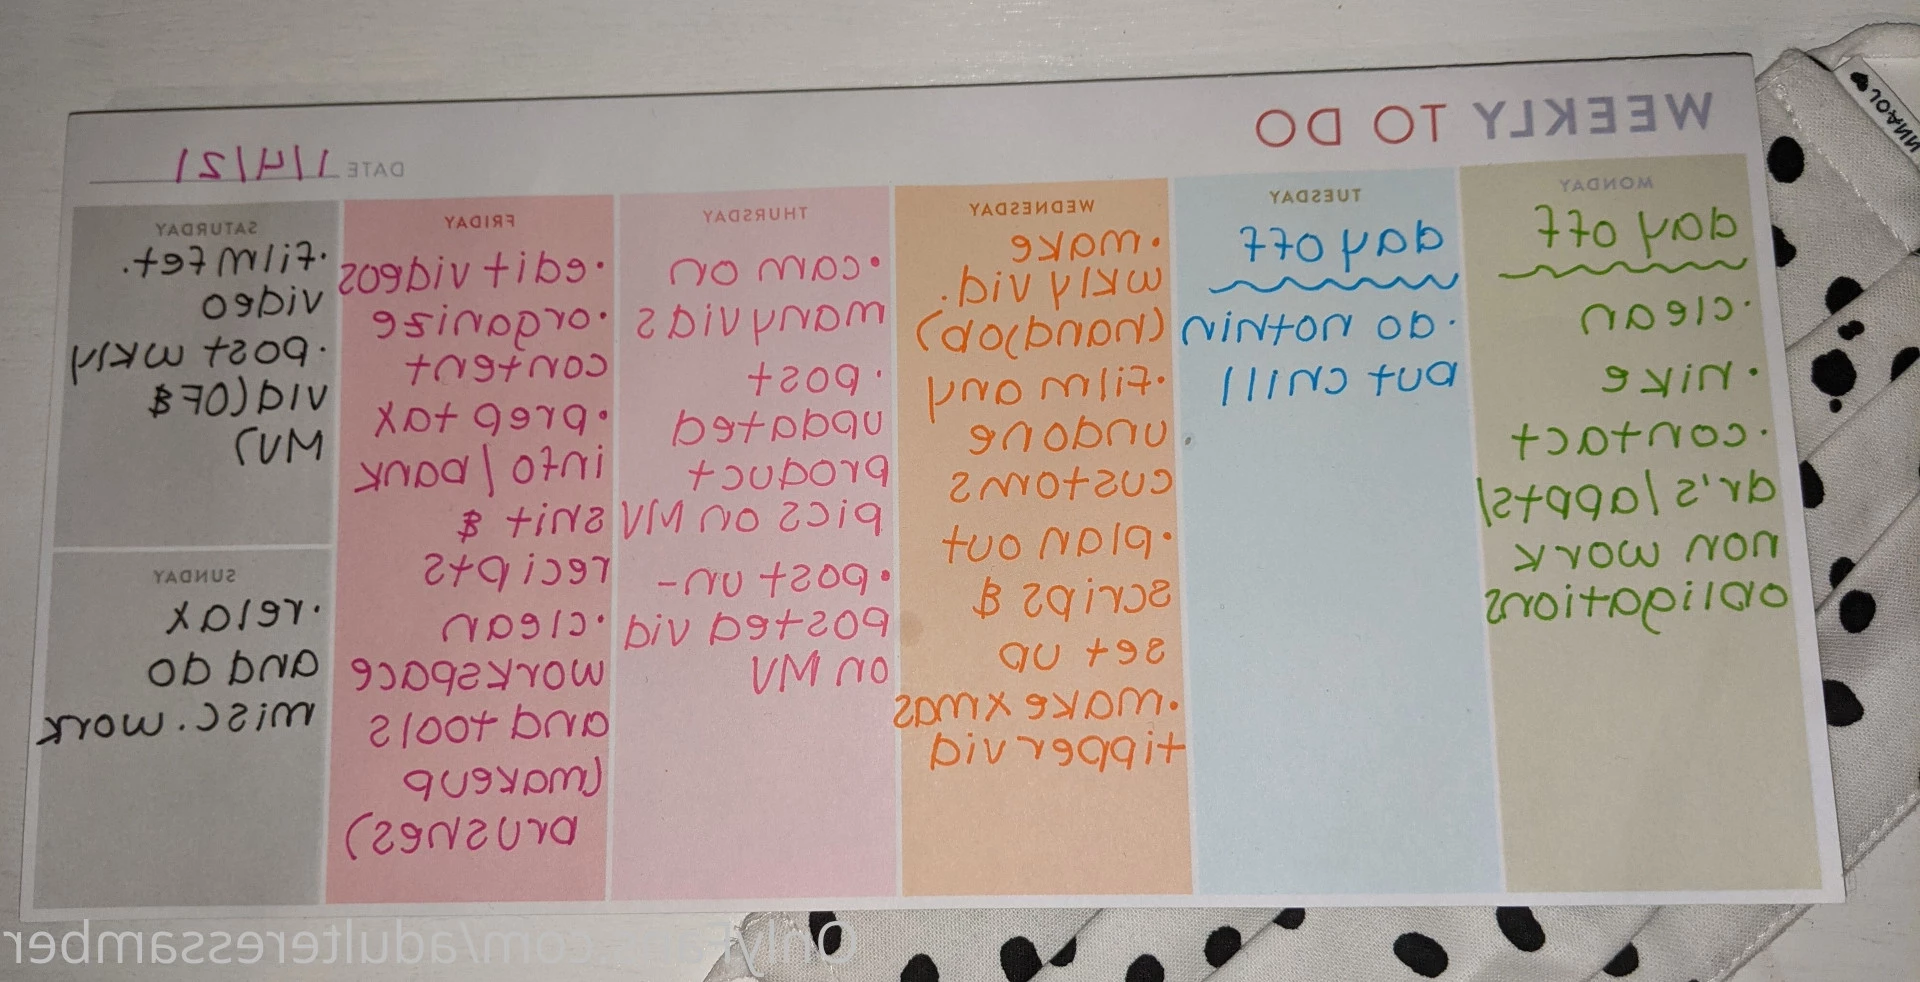 WEEKLY TO DO
DATE 1/4/21
MONDAY
day off
·clean
·hike
·contact
dr.'s/appts/
non work
obligations
TUESDAY
day off
·do nothin
but chill
WEDNESDAY
·make
wkly vid.
(handjob)
·film any
undone
customs
·plan out
scrips &
set up
·make xmas
tipper vid
THURSDAY
·cam on
manyvids
·post
updated
product
pics on MV
·post un-
posted vid
on MV
FRIDAY
·edit videos
·organize
content
·prep tax
info/bank
shit &
recipts
·clean
workspace
and tools
(makeup
brushes)
SATURDAY
·film fet.
video
·post wkly
vid (OF &
MV)
SUNDAY
·relax
and do
misc. work
OnlyFans.com/adulteressamber